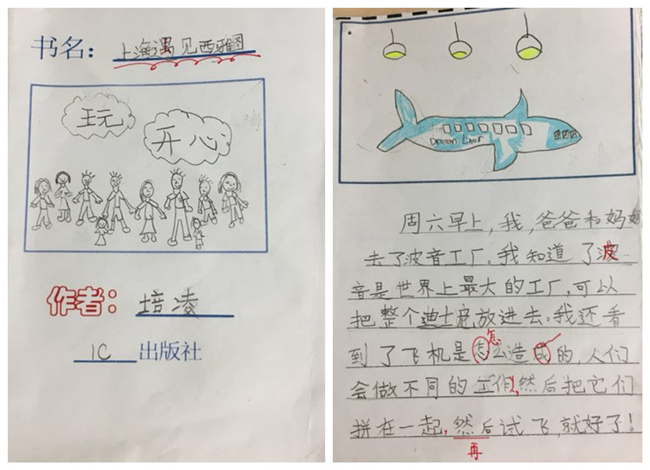 书名：上海遇见西雅图
玩
开心
作者：培凌
1C 出版社
周六早上，我，爸爸和妈妈
去了波音工厂。我知道了波
音是世界上最大的工厂，可以
把整个迪士尼放进去。我还看
怎
到了飞机是怎么造的，人们
会做不同的工作，然后把它们
拼在一起，然后试飞，就好了！
再